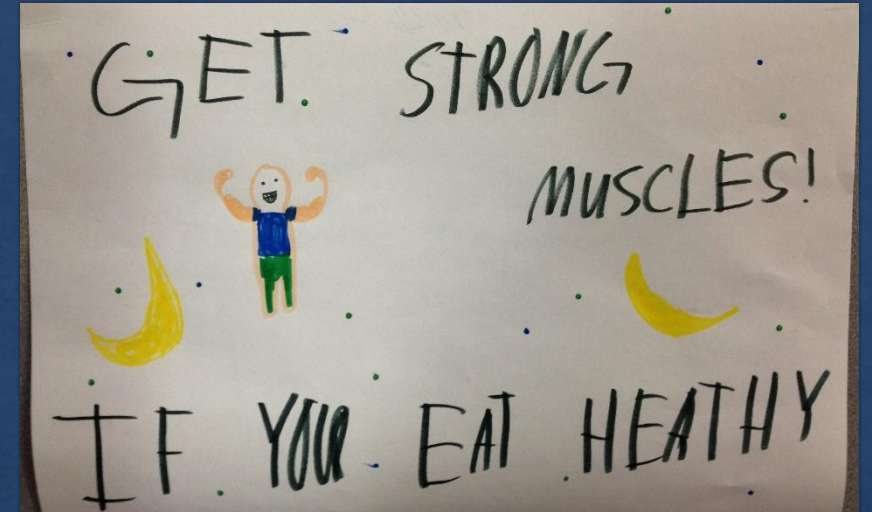 GET STRONG
MUSCLES!
IF YOUR EAT HEATHY